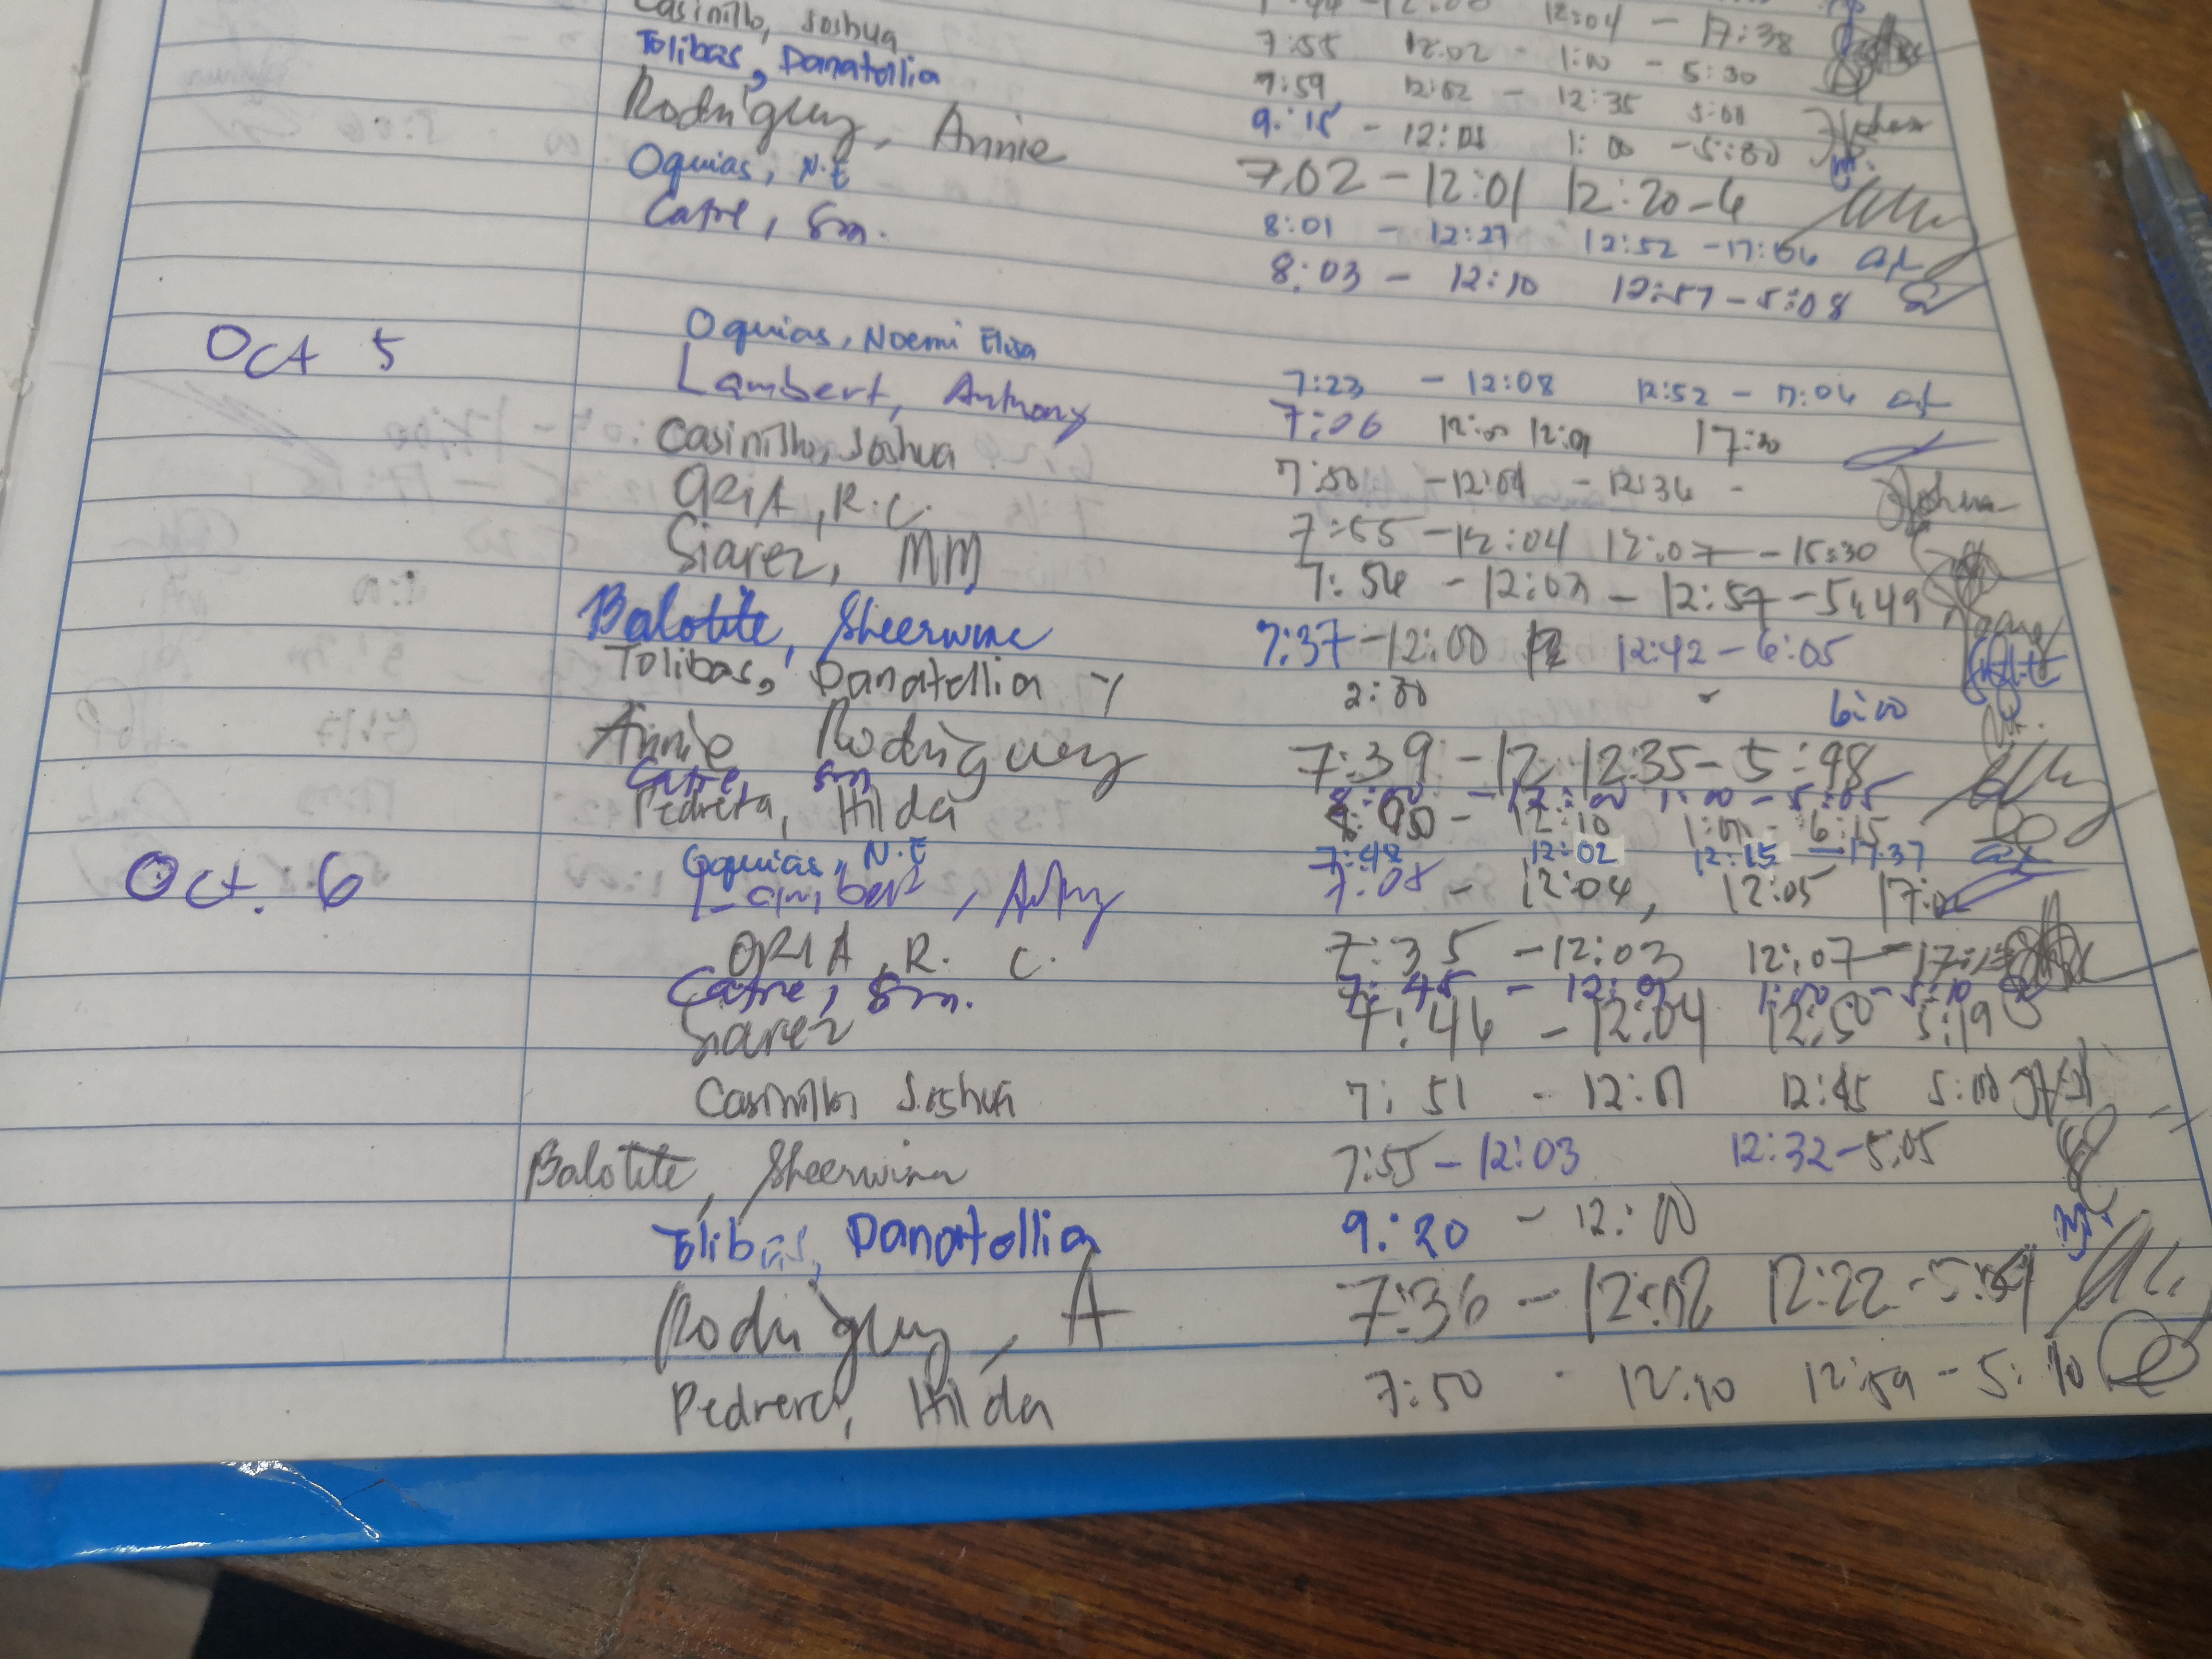 Casinillo, Joshua 12:04 - 17:38
Tolibas, Danatellia 7:55 12:02 - 1:00 - 5:30
7:59 12:02 - 12:35 5:00
Rodriguez, Annie 9:15 - 12:01 1:00 - 5:30
7:02 - 12:01 12:20 - 6
Oquias, N.E 8:01 - 12:27 12:52 - 17:06
Catre, Sm. 8:03 - 12:10 12:57 - 5:08
Oct 5 Oquias, Noemi Elisa 7:23 - 12:08 12:52 - 17:04
Lambert, Anthony 7:06 12:00 12:01 17:30
Casinillo, Joshua 7:50 - 12:01 - 12:36 -
ORIA, R.C. 7:55 - 12:04 12:07 - 15:30
Siarez, MM 7:54 - 12:03 - 12:57 - 5:49
Balotite, Sheerwina 7:37 - 12:00 12:42 - 6:05
Tolibas, Danatellia Y 2:00 - 6:00
Annie Rodriguez 7:39 - 12 12:35 - 5:48
Catre, Sm 8:00 - 12:00 1:00 - 5:05
Pedrera, Hilda 12:10 6:15
Oct. 6 Oquias, N.E 7:48 12:02 12:15 - 17:37
Lambert, 7:08 - 12:04, 12:05
ORIA, R. C. 7:35 - 12:03 12:07
Catre, Sm. 7:45 - 12:01 1:00 - 5:10
Siarez 7:46 - 12:04 12:50 5:19
Casinillo, Joshua 7:51 - 12:01 12:45 5:00
Balotite, Sheerwina 7:55 - 12:03 12:32 - 5:05
Tolibas, Danatellia 9:20 - 12:00
Rodriguez, A 7:36 - 12:02 12:22
Pedrera, Hilda 7:50 - 12:10 12:59 - 5:10